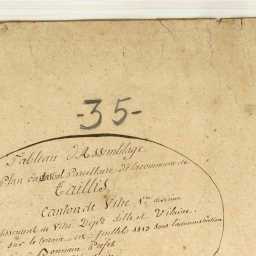 -35-
Tableau d'Assemblage
Plan Cadastral Parcellaire de la commune de
Taillis
Canton de Vitré 1re division
de Vitré Dépt d'Ille et Vilaine
sur le terrein en Juillet 1813 sous l'administration
Préfet